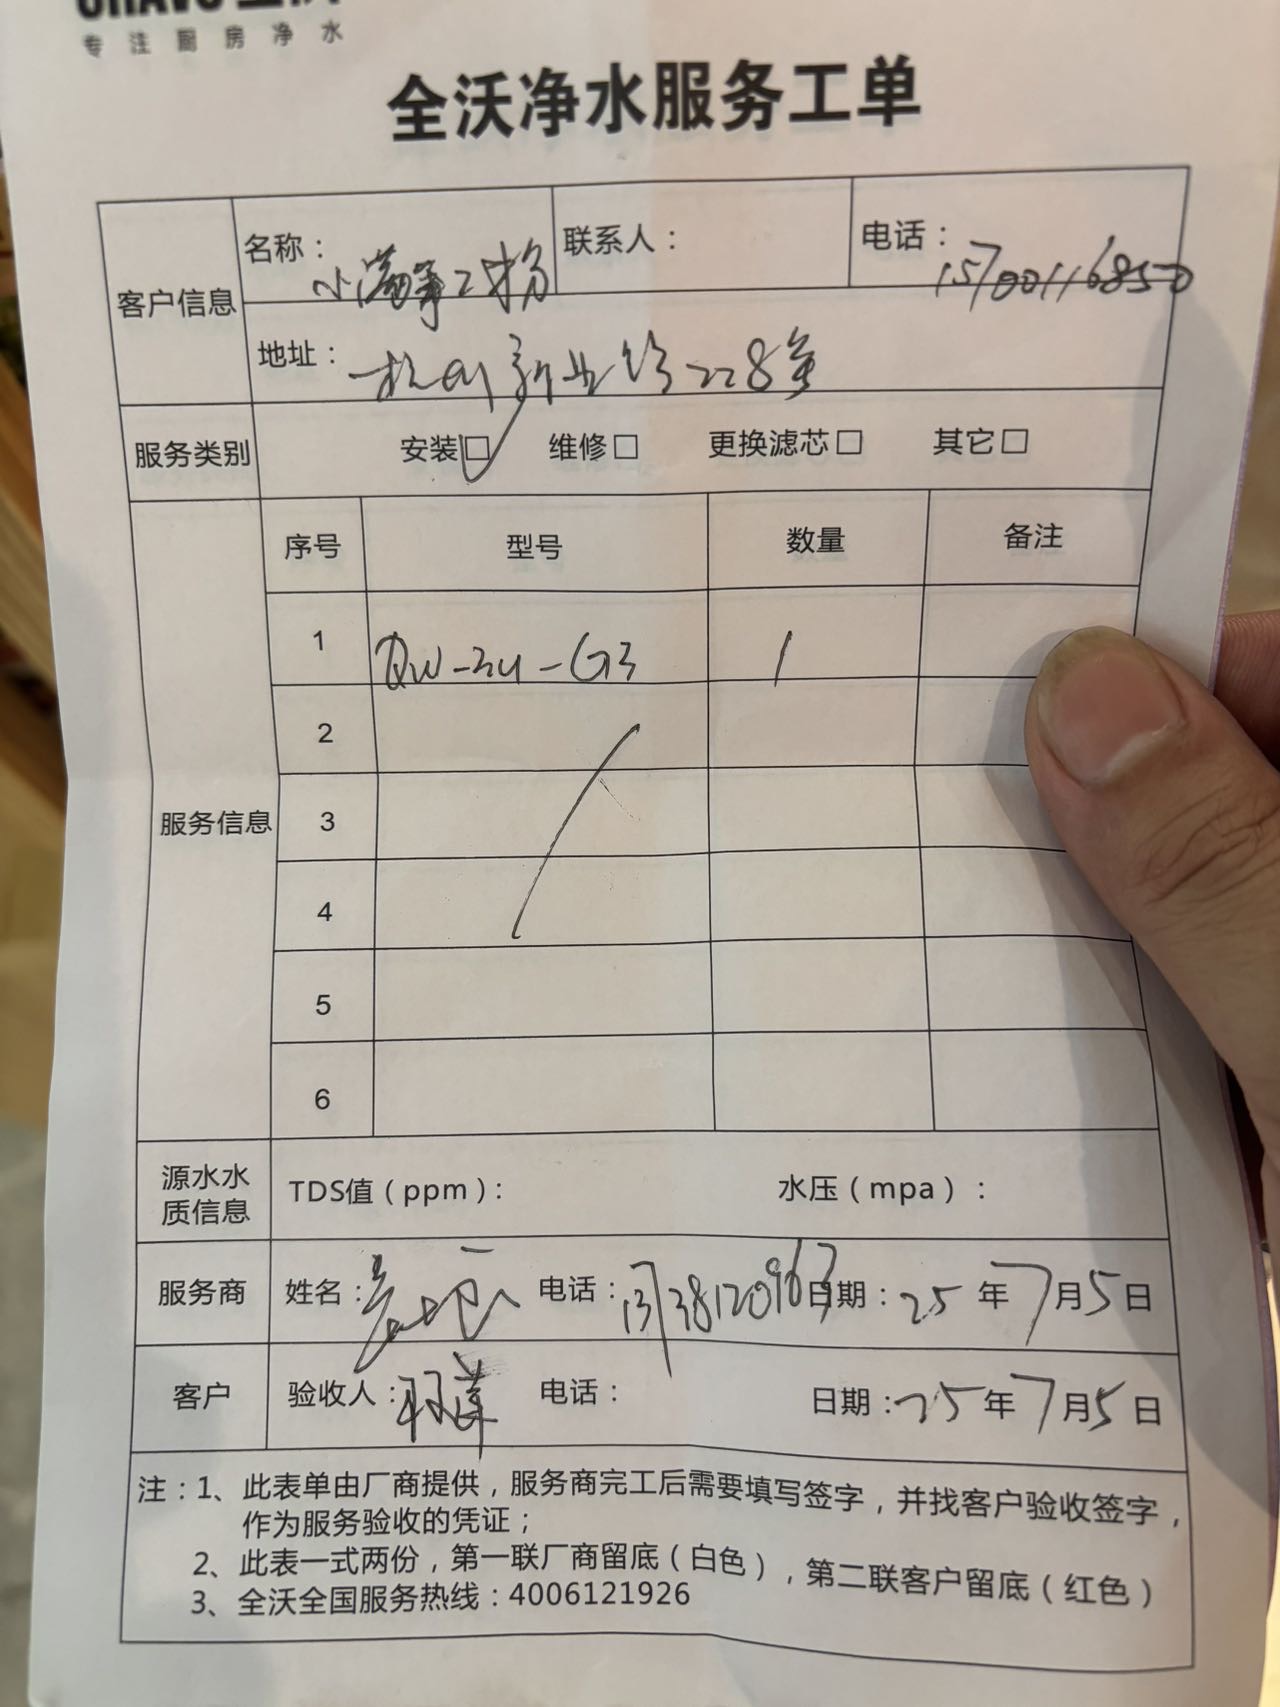 专注厨房净水
全沃净水服务工单
客户信息 名称： 联系人： 电话：15700116850
地址：杭州新业路228号
服务类别 安装☑ 维修□ 更换滤芯□ 其它□
服务信息 序号 型号 数量 备注
1 QW-3U-G3 1
2
3
4
5
6
源水水质信息 TDS值（ppm）： 水压（mpa）：
服务商 姓名： 电话：13738120967 日期：25年7月5日
客户 验收人： 电话： 日期：25年7月5日
注：1、此表单由厂商提供，服务商完工后需要填写签字，并找客户验收签字，
作为服务验收的凭证；
2、此表一式两份，第一联厂商留底（白色），第二联客户留底（红色）
3、全沃全国服务热线：4006121926